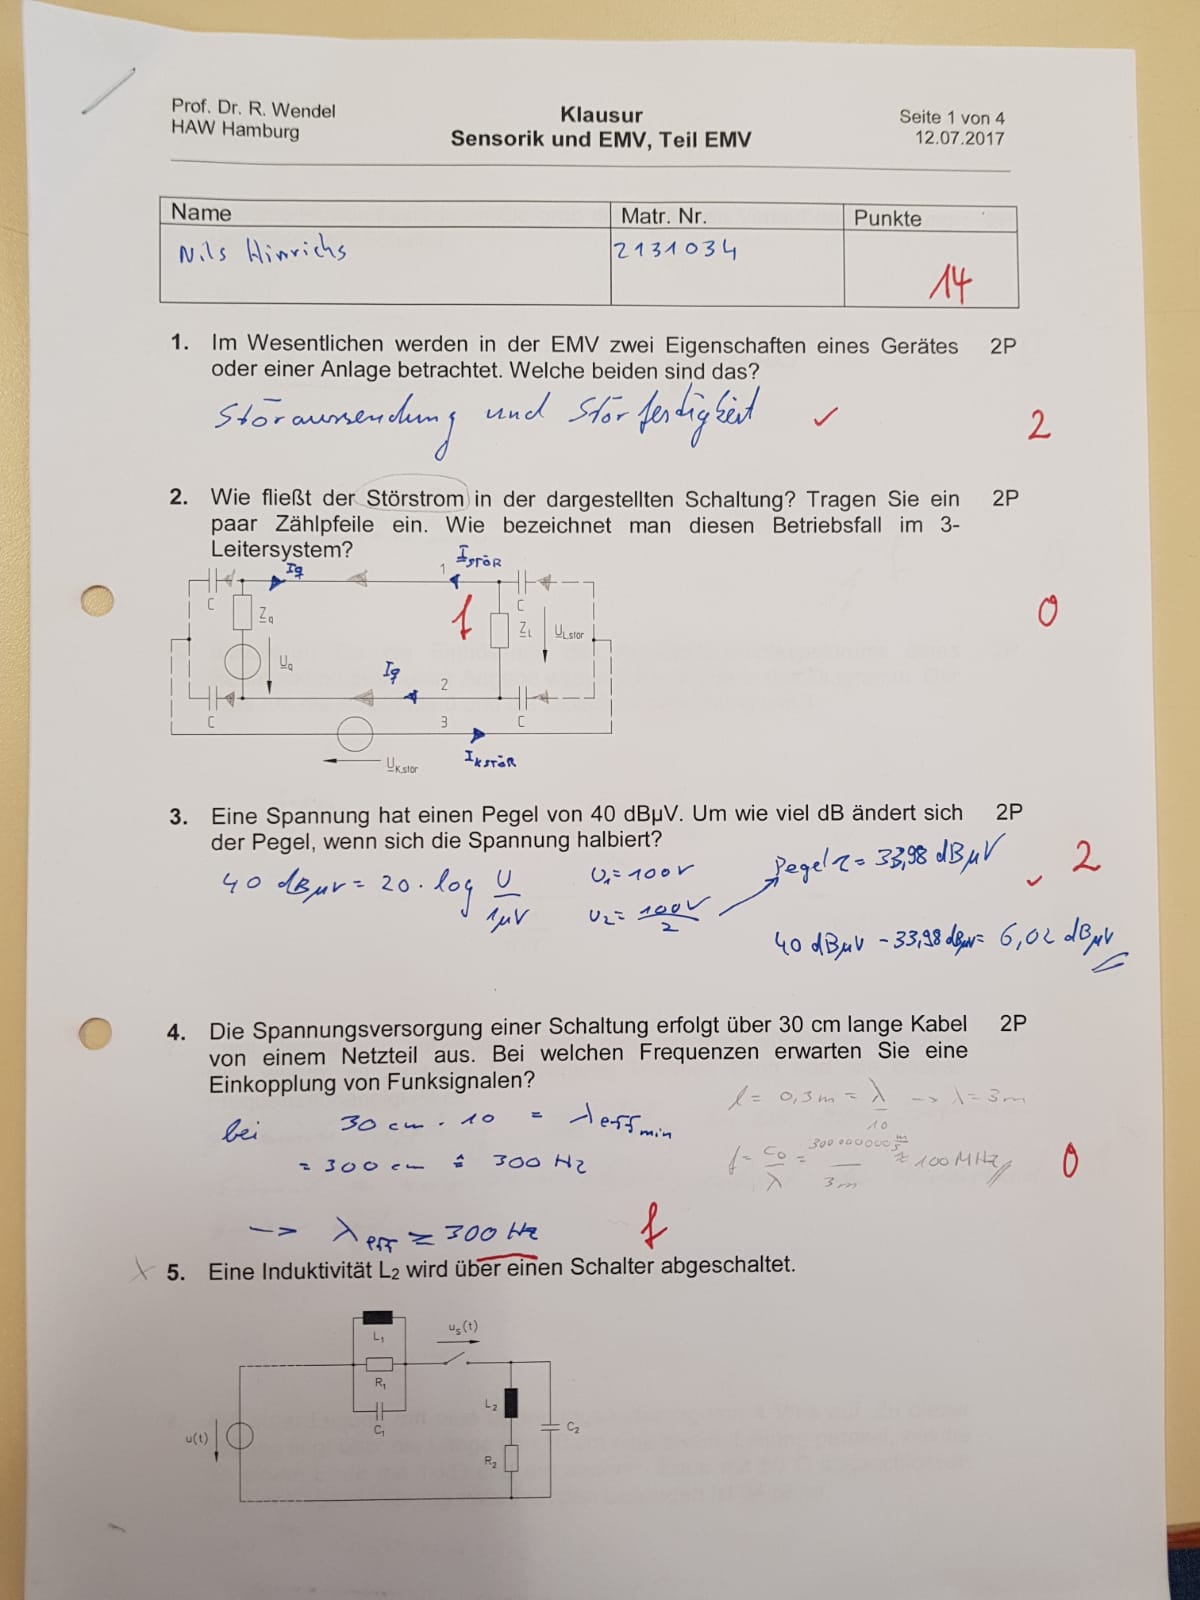 Prof. Dr. R. Wendel
HAW Hamburg
Klausur
Sensorik und EMV, Teil EMV
Seite 1 von 4
12.07.2017
Name
Matr. Nr.
Punkte
Nils Hinrichs
2131034
14
1. Im Wesentlichen werden in der EMV zwei Eigenschaften eines Gerätes 2P
oder einer Anlage betrachtet. Welche beiden sind das?
Störaussendung und Störfestigkeit ✓ 2
2. Wie fließt der Störstrom in der dargestellten Schaltung? Tragen Sie ein 2P
paar Zählpfeile ein. Wie bezeichnet man diesen Betriebsfall im 3-
Leitersystem?
Iq 1 ISTÖR
C Zq f C ZL UL,stör 0
Uq Iq 2
C 3 C
UK,stör IKSTÖR
3. Eine Spannung hat einen Pegel von 40 dBµV. Um wie viel dB ändert sich 2P
der Pegel, wenn sich die Spannung halbiert?
40 dBµV = 20 · log U/1µV U1 = 100V Pegel 2 = 33,98 dBµV ✓ 2
U2 = 100V/2
40 dBµV - 33,98 dBµV = 6,02 dBµV
4. Die Spannungsversorgung einer Schaltung erfolgt über 30 cm lange Kabel 2P
von einem Netzteil aus. Bei welchen Frequenzen erwarten Sie eine
Einkopplung von Funksignalen?
l = 0,3m = λ/10 -> λ = 3m
bei 30 cm · 10 = λeff min
= 300 cm ≙ 300 Hz
f = c0/λ = 300000000 m/s / 3m ≈ 100 MHz 0
-> λeff ≥ 300 Hz f
x 5. Eine Induktivität L2 wird über einen Schalter abgeschaltet.
L1 us(t)
R1
C1 L2 C2
u(t) R2